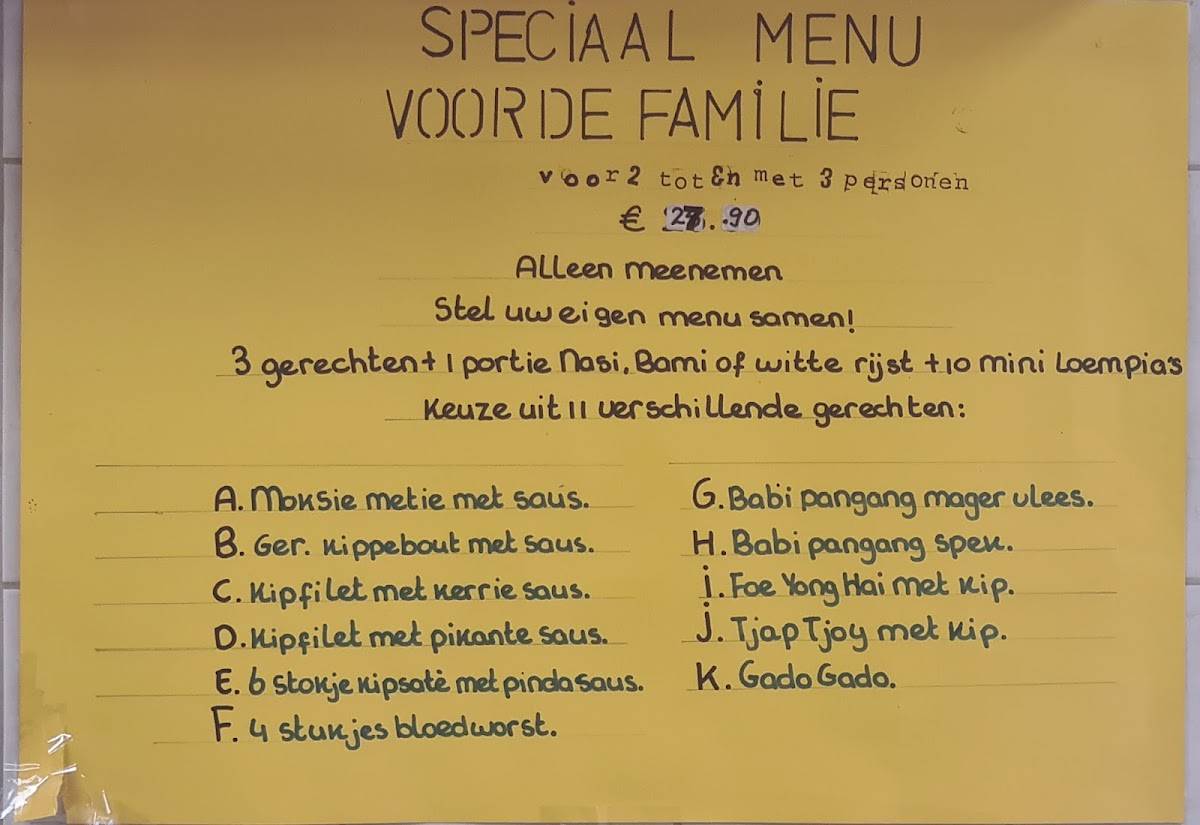 SPECiAAL MENU
VOOR DE FAMiLiE
voor 2 tot En met 3 personen
€ 27.90
Alleen meenemen
Stel uw eigen menu samen!
3 gerechten + 1 portie Nasi, Bami of witte rijst + 10 mini Loempia's
Keuze uit 11 verschillende gerechten:
A. Moksie metie met saus.
B. Ger. kippebout met saus.
C. Kipfilet met kerrie saus.
D. Kipfilet met pikante saus.
E. 6 stokje kipsatè met pindasaus.
F. 4 stukjes bloedworst.
G. Babi pangang mager vlees.
H. Babi pangang spek.
i. Foe Yong Hai met kip.
j. Tjap Tjoy met kip.
K. Gado Gado.